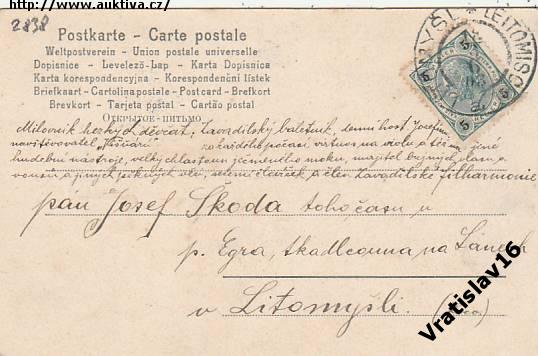 http://www.auktiva.cz/
2838
Postkarte - Carte postale
Weltpostverein - Union postale universelle
Dopisnice - Levelező-Lap - Karta Dopisnica
Karta korespondencyjna - Korespondenční lístek
Briefkaart - Cartolina postale - Postcard - Brefkort
Brevkort - Tarjeta postal - Cartão postal
Открытое письмо
LEITOMISCHL
5
Milovník hezkých děvčat, zavadilský baletník, denní host
navštěvovatel za každého počasí virtuos na violu a jiné
hudební nástroje, velký chlastoun ječmenného moku, majitel bujných
vousů a jiných člen zavadilské filharmonie
pan Josef Škoda toho času u
p. Egra, tkadlcovna na Lánech
v Litomyšli.
Vratislav16